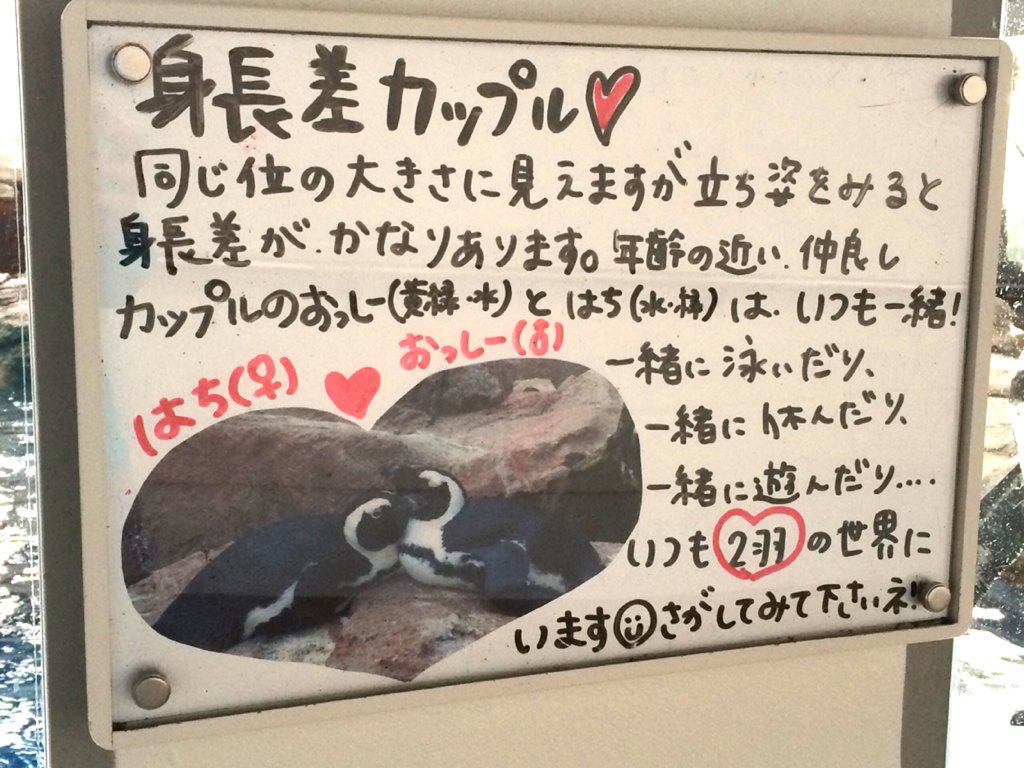 身長差カップル♥
同じ位の大きさに見えますが立ち姿をみると
身長差が、かなりあります。年齢の近い、仲良し
カップルのおっしー(黄緑・水)とはち(水・緑)は、いつも一緒!
はち(♀) ♥ おっしー(♂)
一緒に泳いだり、
一緒に休んだり、
一緒に遊んだり....
いつも2羽の世界に
います☺さがしてみて下さいネ!